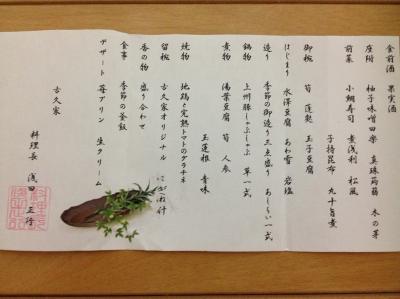 食前酒 果実酒
座附 柚子味噌田楽 真珠蒟蒻 木の芽
前菜 小鯛寿司 煮浅利 松風
子持昆布 九十旨煮
御椀 筍 蓬麩 玉子豆腐
はじまり 水澤豆腐 あわ雪 岩塩
造り 季節の御造り三点盛り あしらい一式
鍋物 上州豚しゃぶしゃぶ 草一式
煮物 湯葉豆腐 筍 人参
玉蓮根 青味
焼物 地鶏と完熟トマトのグラチネ
留椀 古久家オリジナル
香の物 盛り合わせ
食事 季節の釜飯
デザート 苺プリン 生クリーム
古久家
料理長 浅田 三行